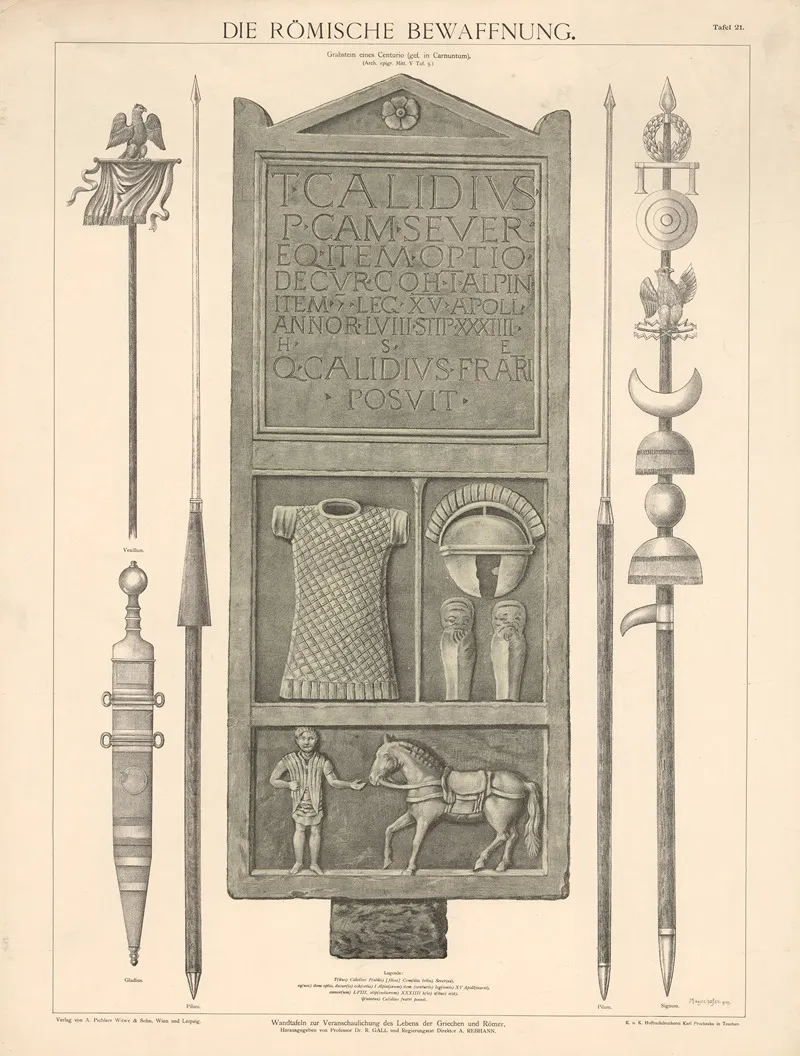 DIE RÖMISCHE BEWAFFNUNG.
Tafel 21.
Grabstein eines Centurio (gef. in Carnuntum).
(Arch. epigr. Mitt. V Taf. 5.)
T·CALIDIVS
P·CAM·SEVER
EQ·ITEM·OPTIO
DECVR·COH·I·ALPIN
ITEM·7·LEG·XV·APOLL
ANNOR·LVIII·STIP·XXXIIII·
H· S· E
Q·CALIDIVS·FRATRI
POSVIT
Vexillum.
Gladius.
Pilum.
Pilum.
Signum.
Legende:
T(itus) Calidius P(ublii) [filius] Cam(ilia tribu) Sever(us),
eq(ues) item optio, decur(io) coh(ortis) I Alpin(orum) item (centurio) leg(ionis) XV Apoll(inaris),
annor(um) LVIII, stip(endiorum) XXXIIII h(ic) s(itus) e(st).
Q(uintus) Calidius fratri posuit.
Verlag von A. Pichlers Witwe & Sohn, Wien und Leipzig.
Wandtafeln zur Veranschaulichung des Lebens der Griechen und Römer.
Herausgegeben von Professor Dr. R. GALL und Regierungsrat Direktor A. REBHANN.
K. u. K. Hofbuchdruckerei Karl Prochaska in Teschen.